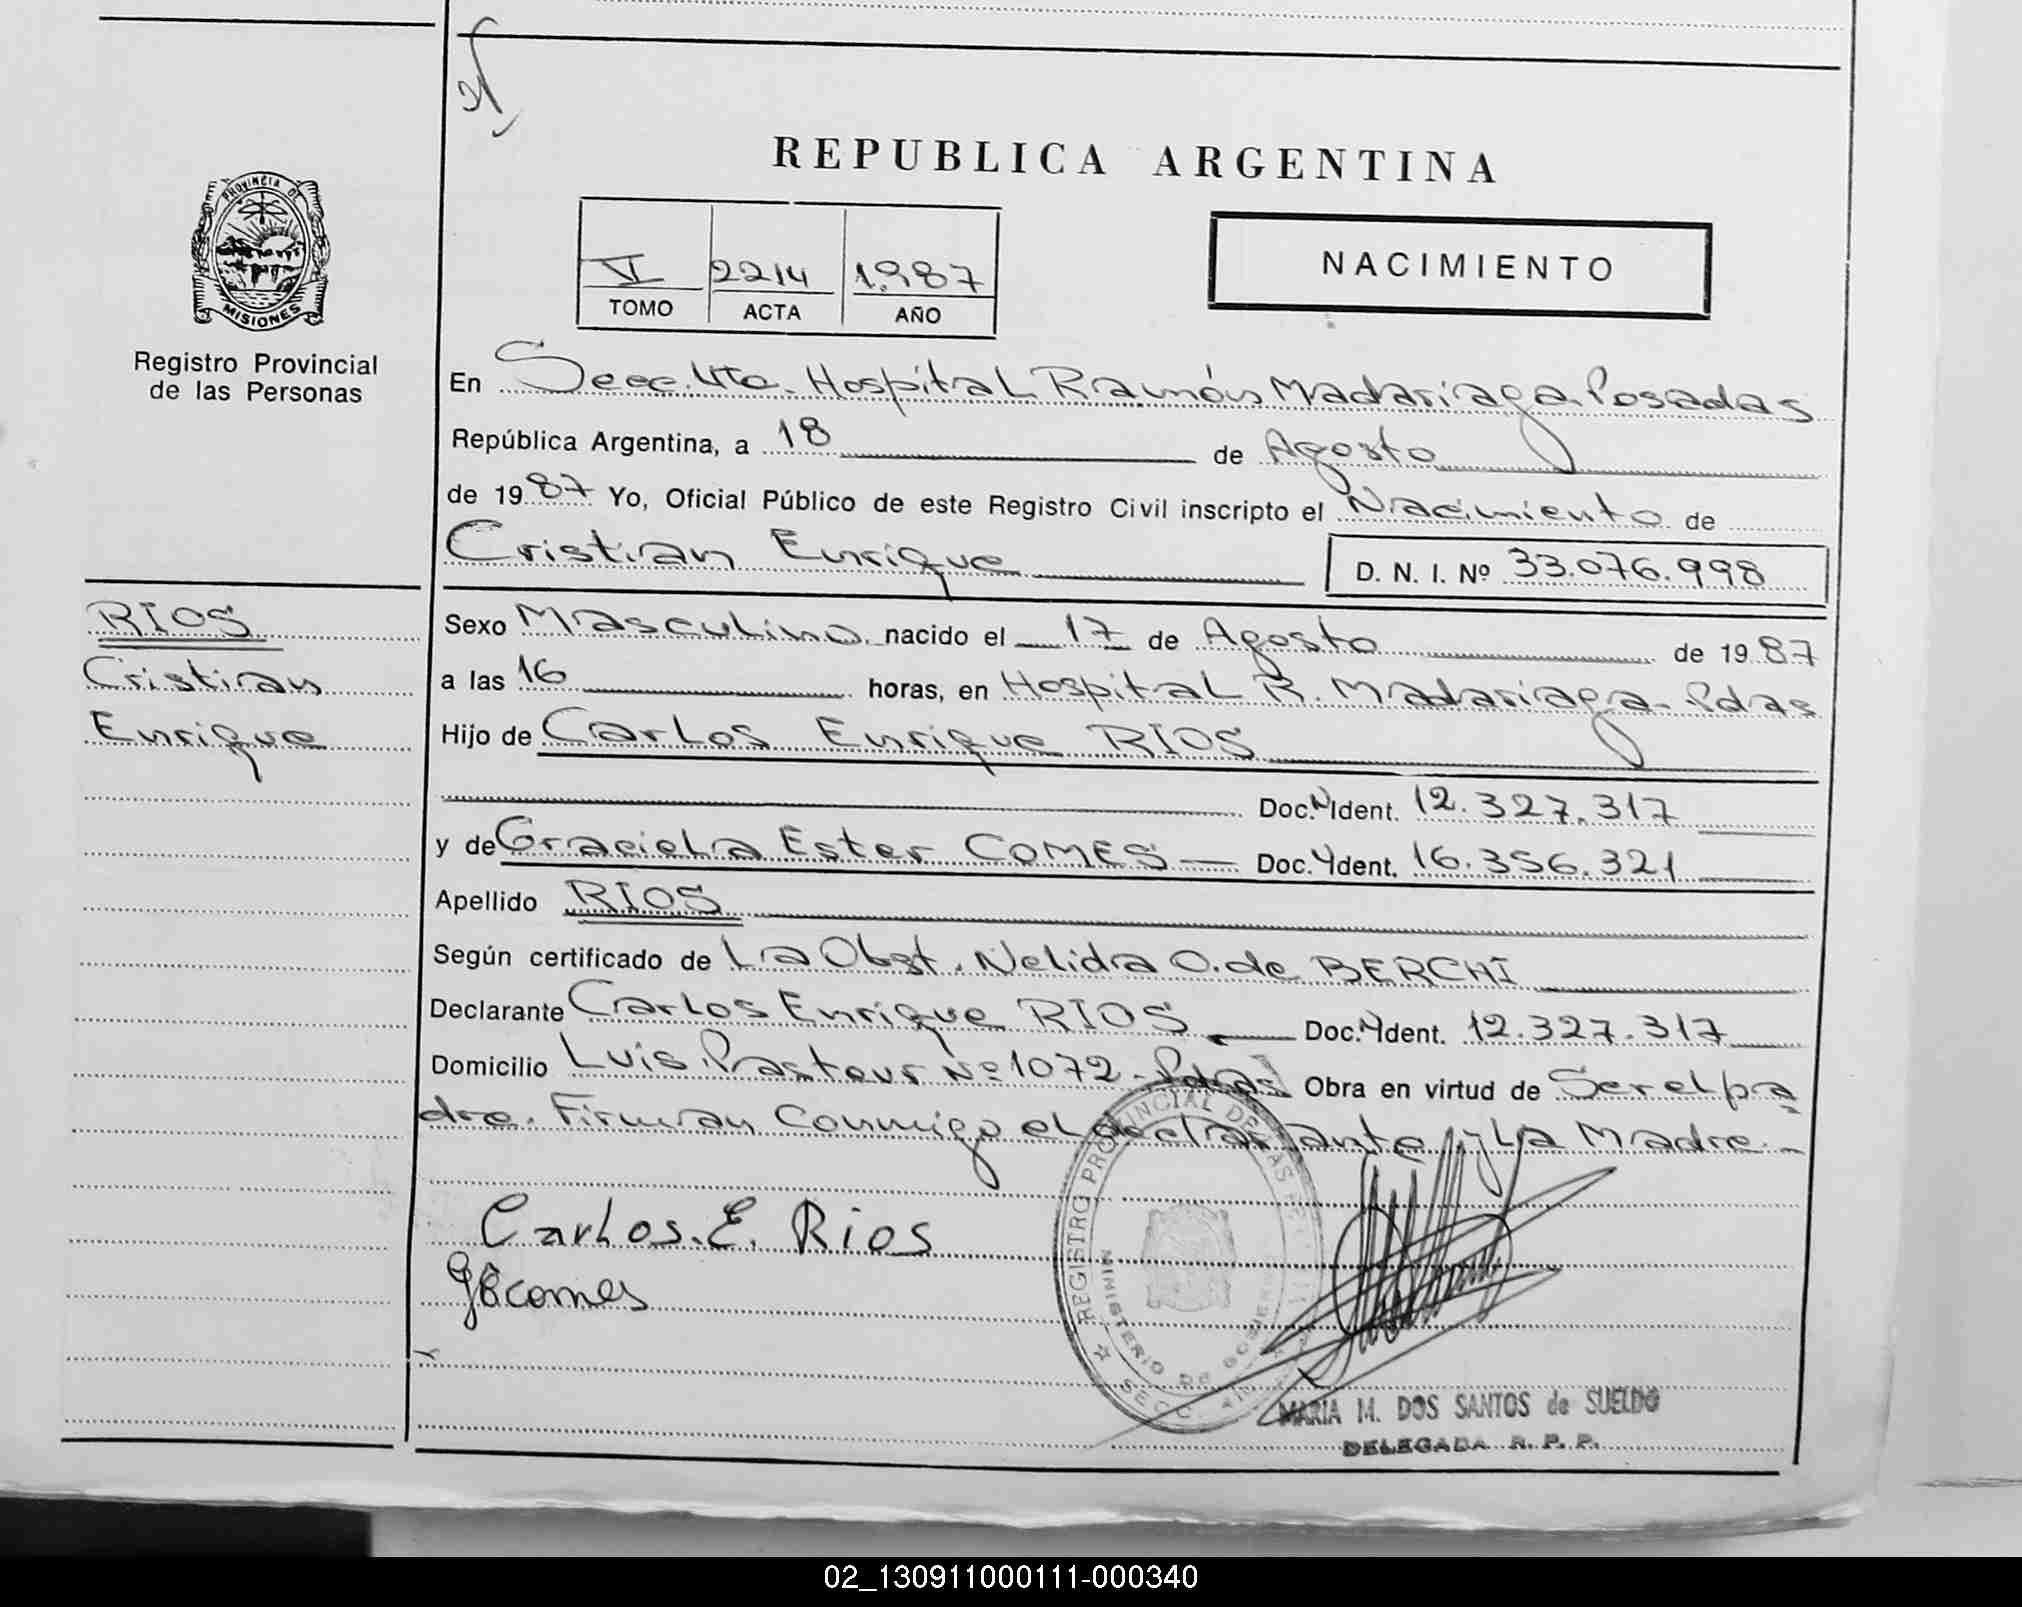 REPUBLICA ARGENTINA
PROVINCIA DE
MISIONES
Registro Provincial
de las Personas
VI 2214 1.987
TOMO ACTA AÑO
NACIMIENTO
En Secc. 4ta. Hospital Ramón Madariaga. Posadas
República Argentina, a 18 de Agosto
de 1987 Yo, Oficial Público de este Registro Civil inscripto el Nacimiento de
Cristian Enrique D. N. I. Nº 33.076.998
RIOS
Cristian
Enrique
Sexo Masculino nacido el 17 de Agosto de 1987
a las 16 horas, en Hospital R. Madariaga- Pdas
Hijo de Carlos Enrique RIOS
Doc. Ident. 12.327.317
y de Graciela Ester COMES Doc. Ident. 16.356.321
Apellido RIOS
Según certificado de La Obst. Nelida O. de BERCHI
Declarante Carlos Enrique RIOS Doc. Ident. 12.327.317
Domicilio Luis Pasteur Nº 1072 - Pdas Obra en virtud de Ser el pa
dre. Firman Conmigo el declarante y La Madre.-
Carlos. E. Rios
GEcomes
REGISTRO PROVINCIAL DE LAS
MINISTERIO DE GOBIERNO
SECC.
MARIA M. DOS SANTOS de SUELDO
DELEGADA R. P. P.
02_130911000111-000340